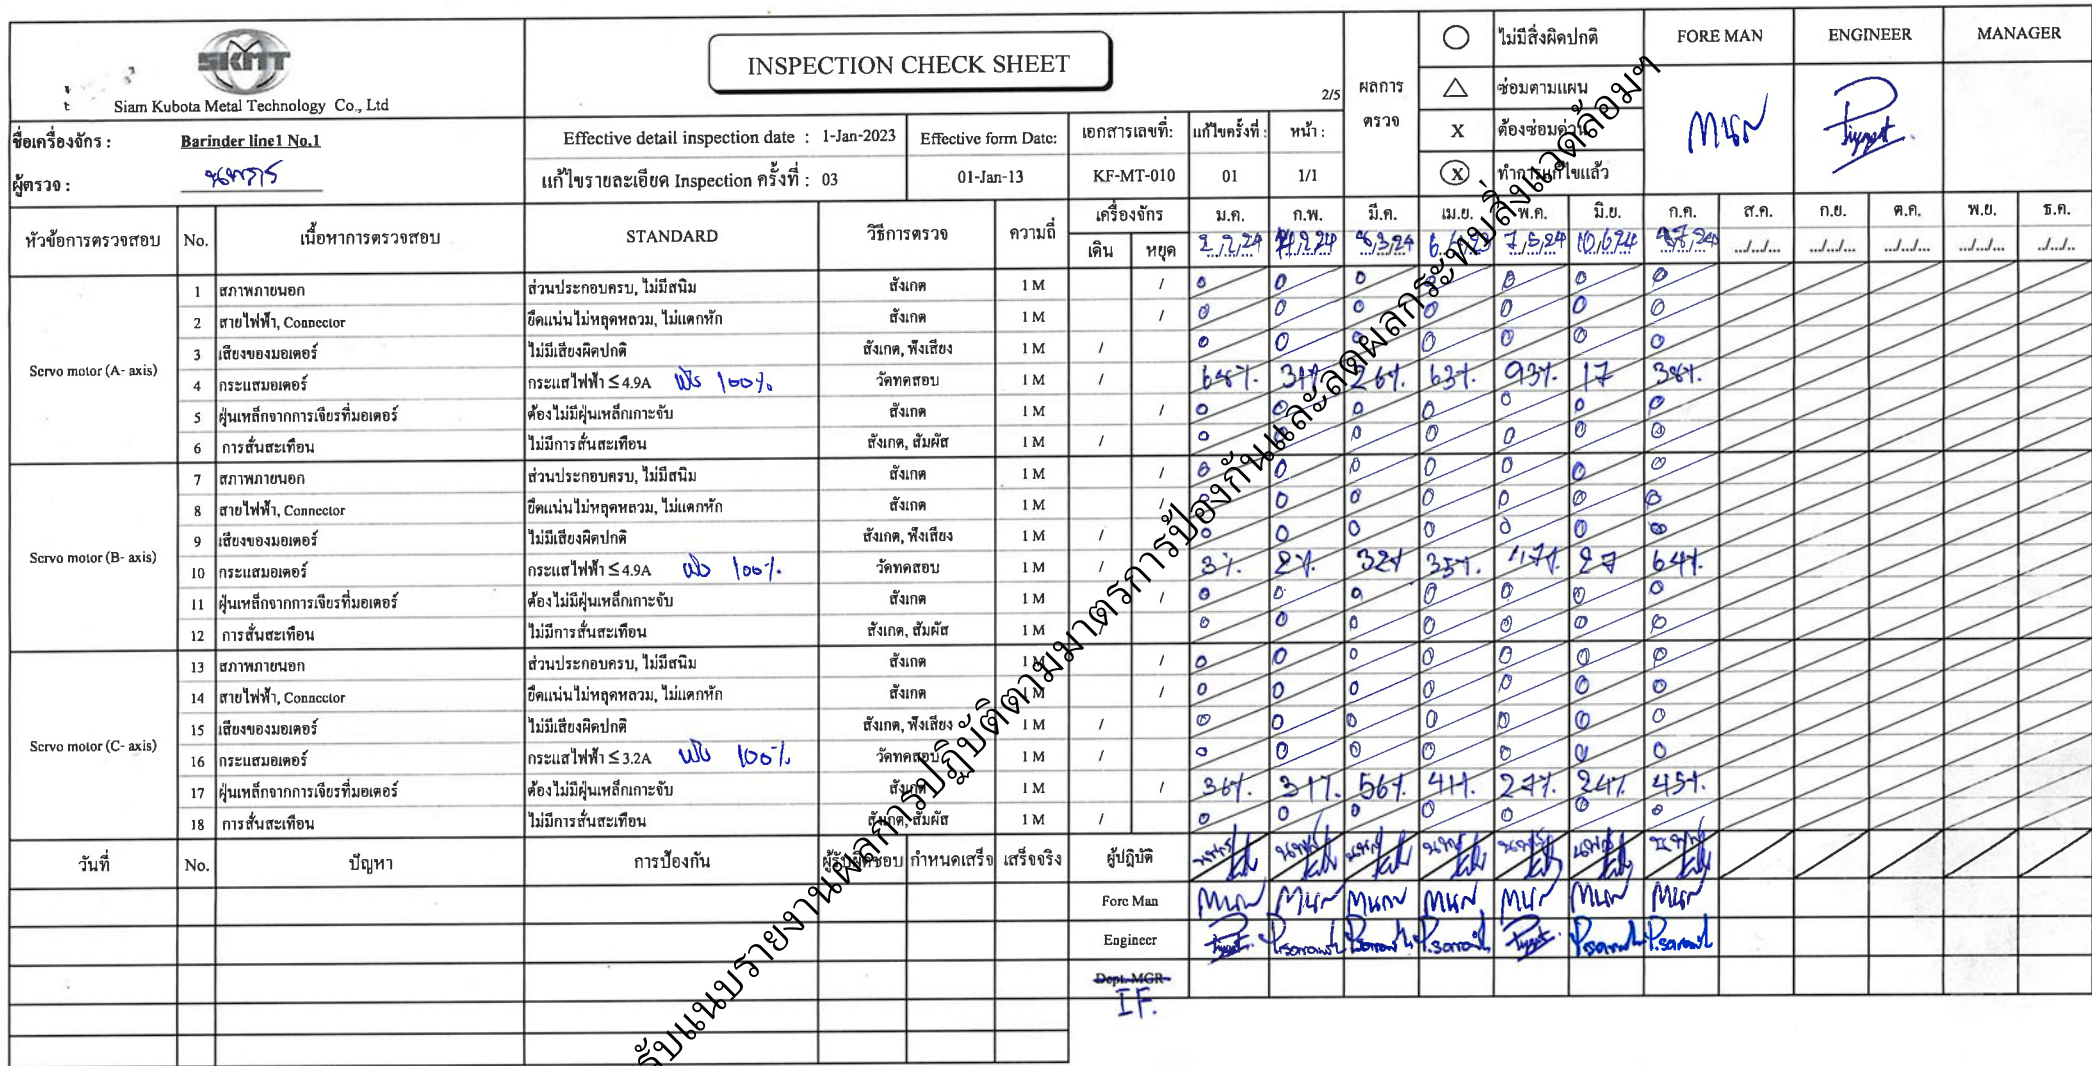 SKMT
Siam Kubota Metal Technology Co., Ltd
INSPECTION CHECK SHEET
2/5
ผลการ
ตรวจ
○ ไม่มีสิ่งผิดปกติ
△ ซ่อมตามแผน
X ต้องซ่อมด่วน
Ⓧ ทำการแก้ไขแล้ว
FORE MAN ENGINEER MANAGER
ชื่อเครื่องจักร : Barinder line1 No.1
ผู้ตรวจ :
Effective detail inspection date : 1-Jan-2023
Effective form Date:
เอกสารเลขที่: แก้ไขครั้งที่ : หน้า :
แก้ไขรายละเอียด Inspection ครั้งที่ : 03
01-Jan-13 KF-MT-010 01 1/1
หัวข้อการตรวจสอบ No. เนื้อหาการตรวจสอบ STANDARD วิธีการตรวจ ความถี่ เครื่องจักร ม.ค. ก.พ. มี.ค. เม.ย. พ.ค. มิ.ย. ก.ค. ส.ค. ก.ย. ต.ค. พ.ย. ธ.ค.
เดิน หยุด 2,2,24 8,3,24 7,5,24 10,6,24 .../.../... .../.../... .../.../... .../.../... .../.../..
Servo motor (A- axis)
1 สภาพภายนอก ส่วนประกอบครบ, ไม่มีสนิม สังเกต 1 M / 0 0 0 0 0 0 0
2 สายไฟฟ้า, Connector ยึดแน่นไม่หลุดหลวม, ไม่แตกหัก สังเกต 1 M / 0 0 0 0 0 0 0
3 เสียงของมอเตอร์ ไม่มีเสียงผิดปกติ สังเกต, ฟังเสียง 1 M / 0 0 0 0 0 0 0
4 กระแสมอเตอร์ กระแสไฟฟ้า ≤ 4.9A 100% วัดทดสอบ 1 M / 68%. 26%. 63%. 93%. 17 38%.
5 ฝุ่นเหล็กจากการเจียรที่มอเตอร์ ต้องไม่มีฝุ่นเหล็กเกาะจับ สังเกต 1 M / 0 0 0 0 0 0 0
6 การสั่นสะเทือน ไม่มีการสั่นสะเทือน สังเกต, สัมผัส 1 M / 0 0 0 0 0 0 0
Servo motor (B- axis)
7 สภาพภายนอก ส่วนประกอบครบ, ไม่มีสนิม สังเกต 1 M / 0 0 0 0 0 0 0
8 สายไฟฟ้า, Connector ยึดแน่นไม่หลุดหลวม, ไม่แตกหัก สังเกต 1 M / 0 0 0 0 0 0 0
9 เสียงของมอเตอร์ ไม่มีเสียงผิดปกติ สังเกต, ฟังเสียง 1 M / 0 0 0 0 0 0 0
10 กระแสมอเตอร์ กระแสไฟฟ้า ≤ 4.9A 100%. วัดทดสอบ 1 M / 3%. 2%. 32% 35%. 47%. 27 64%.
11 ฝุ่นเหล็กจากการเจียรที่มอเตอร์ ต้องไม่มีฝุ่นเหล็กเกาะจับ สังเกต 1 M / 0 0 0 0 0 0 0
12 การสั่นสะเทือน ไม่มีการสั่นสะเทือน สังเกต, สัมผัส 1 M / 0 0 0 0 0 0 0
Servo motor (C- axis)
13 สภาพภายนอก ส่วนประกอบครบ, ไม่มีสนิม สังเกต 1 M / 0 0 0 0 0 0 0
14 สายไฟฟ้า, Connector ยึดแน่นไม่หลุดหลวม, ไม่แตกหัก สังเกต 1 M / 0 0 0 0 0 0 0
15 เสียงของมอเตอร์ ไม่มีเสียงผิดปกติ สังเกต, ฟังเสียง 1 M / 0 0 0 0 0 0 0
16 กระแสมอเตอร์ กระแสไฟฟ้า ≤ 3.2A 100% วัดทดสอบ 1 M / 0 0 0 0 0 0 0
17 ฝุ่นเหล็กจากการเจียรที่มอเตอร์ ต้องไม่มีฝุ่นเหล็กเกาะจับ สังเกต 1 M / 36%. 31%. 56%. 41%. 27%. 24%. 45%.
18 การสั่นสะเทือน ไม่มีการสั่นสะเทือน สังเกต, สัมผัส 1 M / 0 0 0 0 0 0 0
วันที่ No. ปัญหา การป้องกัน ผู้รับผิดชอบ กำหนดเสร็จ เสร็จจริง ผู้ปฎิบัติ
Fore Man
Engineer
Dept. MGR
IF.
รับแนบรายงานผลการปฏิบัติตามมาตรการป้องกันและลดผลกระทบสิ่งแวดล้อมฯ